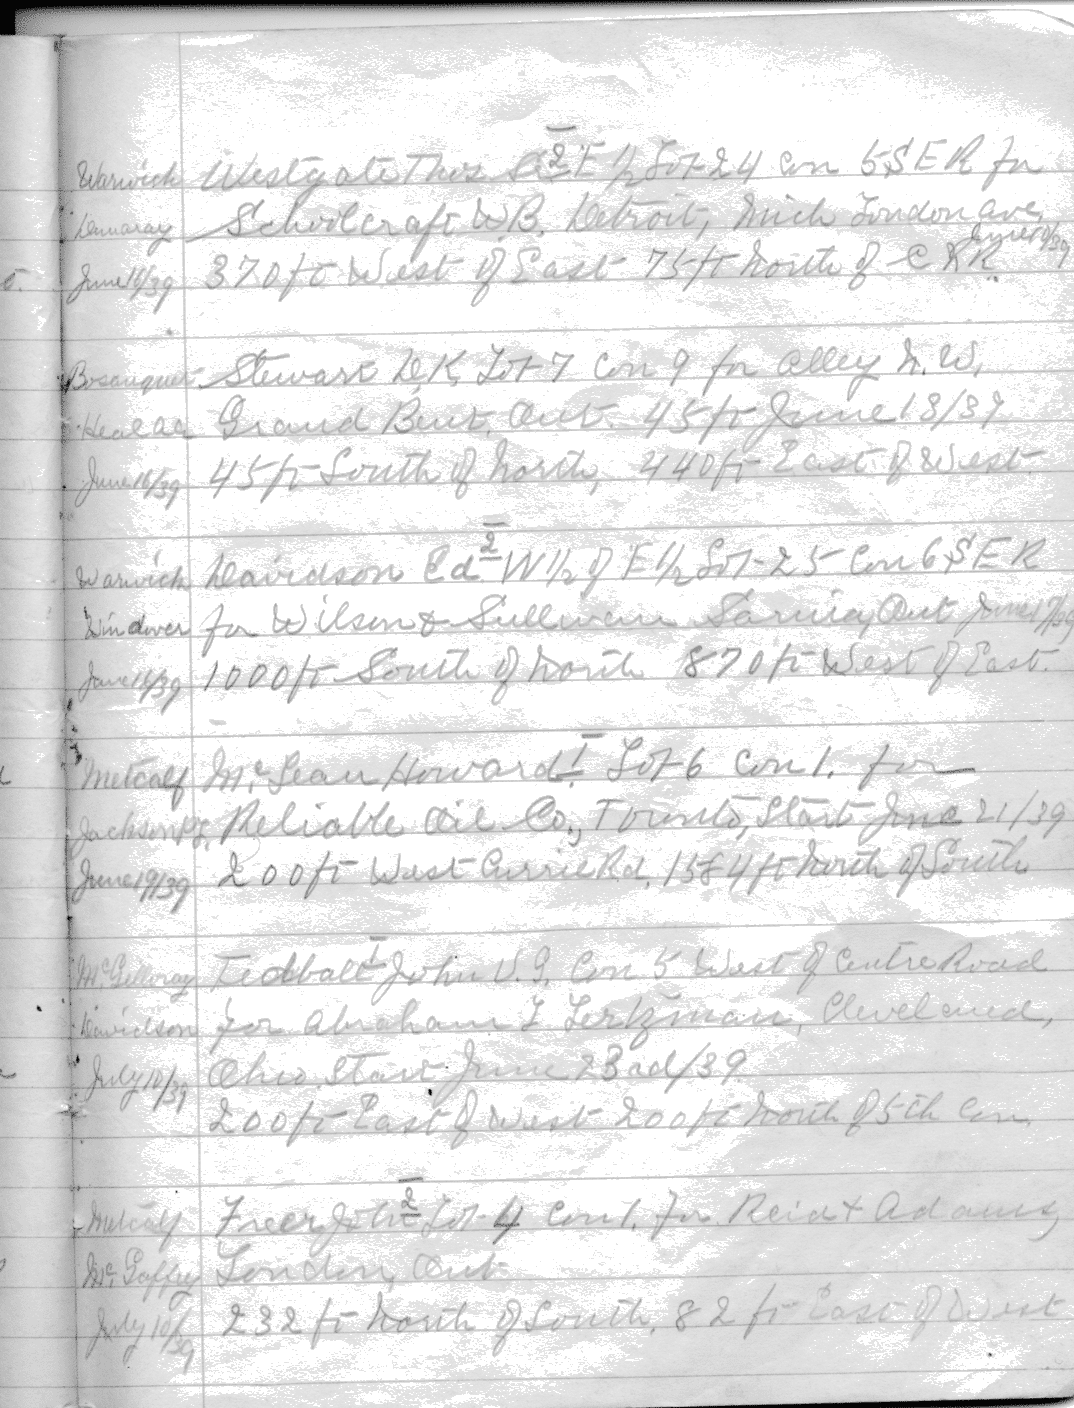 Warwick Westgate Thos 2 E 1/2 Lot 24 Con 5 S E R for
Demaray Schoolcraft W.B. Detroit, Mich London Ave,
June 10/39
June 16/39 370 ft West of East 75 ft North of C R R.
Bosanquet Stewart D.K. Lot 7 Con 9 for Alley N.W.
Grand Bend, Ont. 45 ft June 13/39
June 16/39 45 ft South of North, 440 ft East of West.
Warwick Davidson Ed 2 W 1/2 of E 1/2 Lot 25 Con 6 S E R
Windover for Wilson & Sullivan Sarnia, Ont June 17/39
June 16/39 1000 ft South of North 870 ft West of East.
Metcalf McLean Howard 1 Lot 6 Con 1. for
Jackson Reliable Oil Co., Toronto, Start June 21/39
June 19/39 200 ft West Currie Rd, 1584 ft North of South
McGillvray Tedball 1 John Con 5 West of Centre Road
Davidson for Abraham Lertzman, Cleveland,
July 10/39 Ohio Start June 23ad/39
200 ft East of West 200 ft North of 5th Con.
Metcalf Freer John 2 Lot 4 Con 1. for Reid & Adams,
McGaffey London, Ont
July 10/39 232 ft North of South, 82 ft East of West